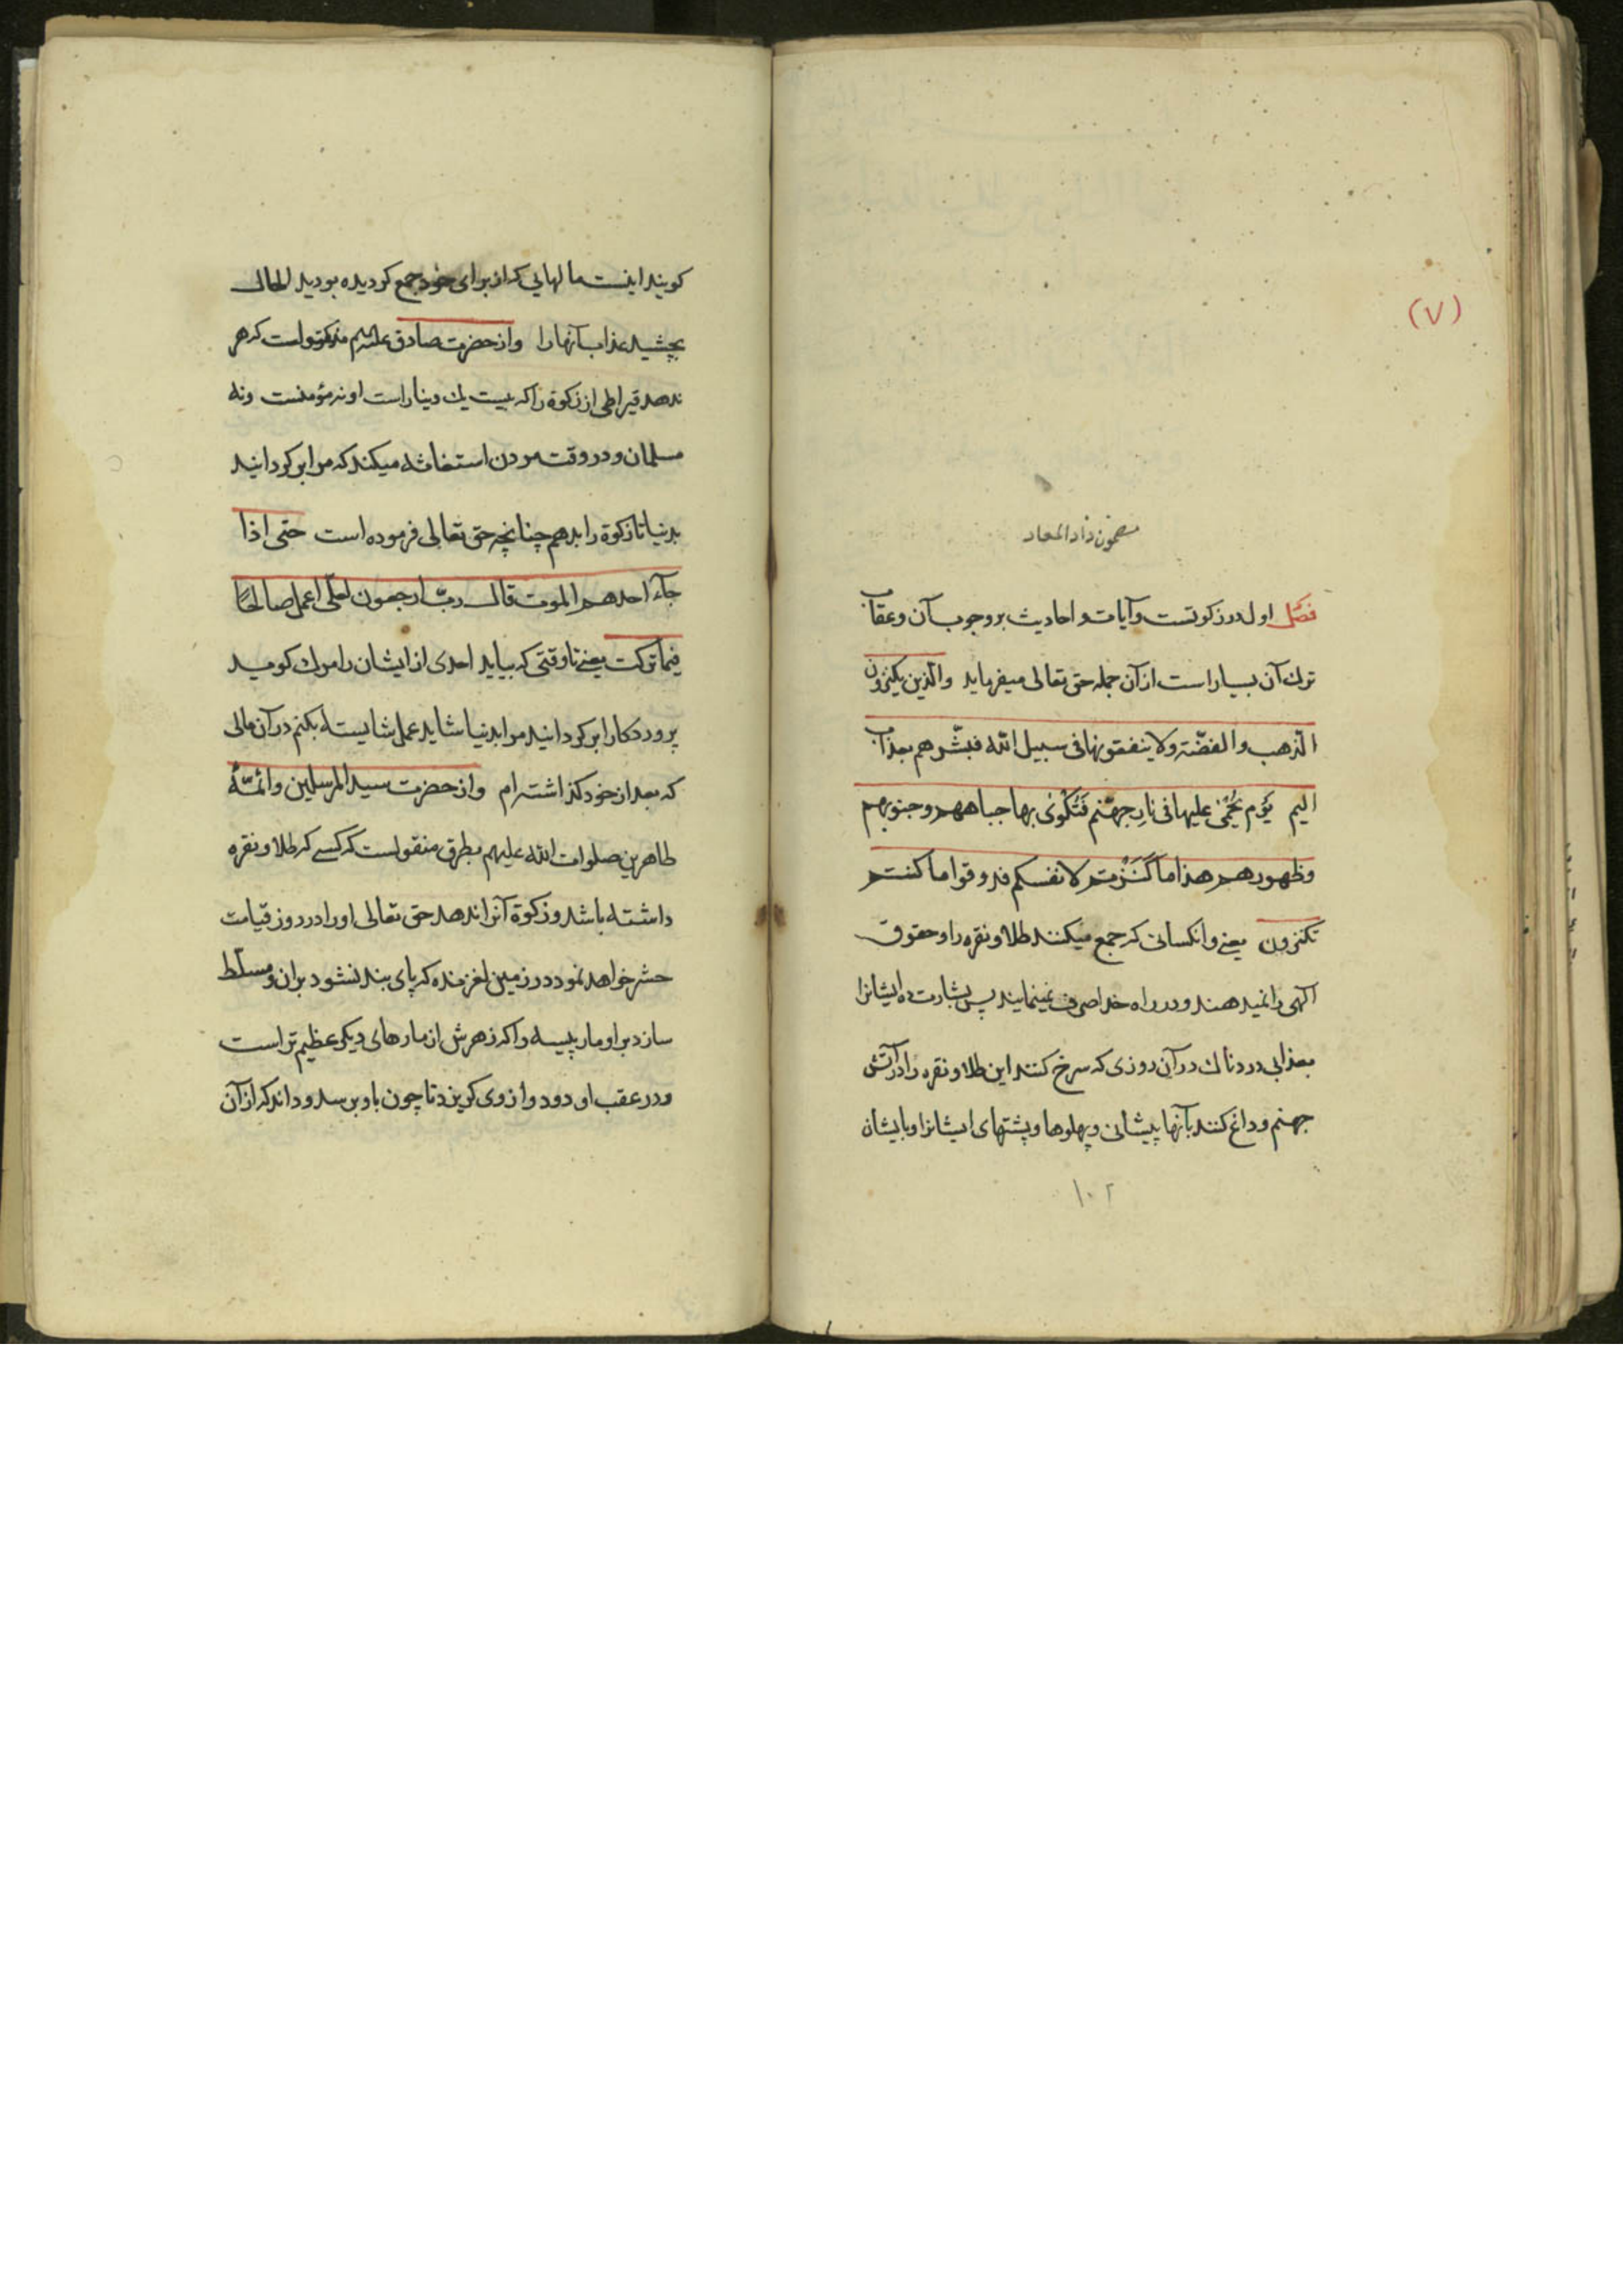 (۷)
مضمون زاد المعاد
فصل اول در زکوتست و آیات و احادیث بر وجوب آن و عقاب
ترك آن بسیار است از آن جمله حق تعالی میفرماید والذین یکنزون
الذهب والفضّة ولا ینفقونها فی سبیل الله فبشّرهم بعذاب
الیم یَوْم یُحْمٰی علیها فی نارِ جهنّم فَتُكْوٰی بها جباههم وجنوبهم
وظهورهم هذا ما كَنَزْتم لانفسکم فذوقوا ما کنتم
تکنزون یعنی و انکسانی که جمع میکنند طلا و نقره را و حقوق
الهی را نمیدهند و در راه خدا صرف نمینمایند پس بشارت ده ایشانرا
بعذابی دردناك در آن روزی که سرخ کنند این طلا و نقره را در آتش
جهنم و داغ کنند بآنها پیشانی و پهلوها و پشتهای ایشانرا و بایشان
۱۰۲
کویند اینست مالهایی که از برای خود جمع کردیده بودید الحال
بچشید عذاب آنها را و از حضرت صادق علیه السلم است که هر
ندهد قیراطی از زکوة را که بیست یك دینار است او نه مؤمنست و نه
مسلمان و در وقت مردن استغاثه میکند که مرا برکردانید
بدنیا تا زکوة را بدهم چنانچه حق تعالی فرموده است حتی اذا
جآء احدهم الموت قال ربّ ارجعون لعلّی اعمل صالحًا
فیما ترکت یعنی تا وقتی که بیاید احدی از ایشان را مرك کوید
پروردکارا برکردانید مرا بدنیا شاید عمل شایسته بکنم در آن مالی
که بعد از خود کذاشته ام و از حضرت سید المرسلین و ائمّهٔ
طاهرین صلوات الله علیهم بطرق منقولست که کسی که طلا و نقره
داشته باشد و زکوة آنرا ندهد حق تعالی او را در روز قیامت
حشر خواهد نمود در زمین لغزنده که پای بند نشود بر ان و مسلّط
سازد بر او مار پیسه را که زهرش از مارهای دیکر عظیم تر است
و در عقب او دود و از وی کریزد تا چون باو برسد و داند که از آن